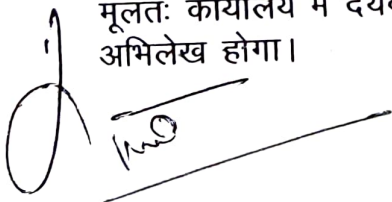 मूलतः कार्यालय में
अभिलेख होगा।